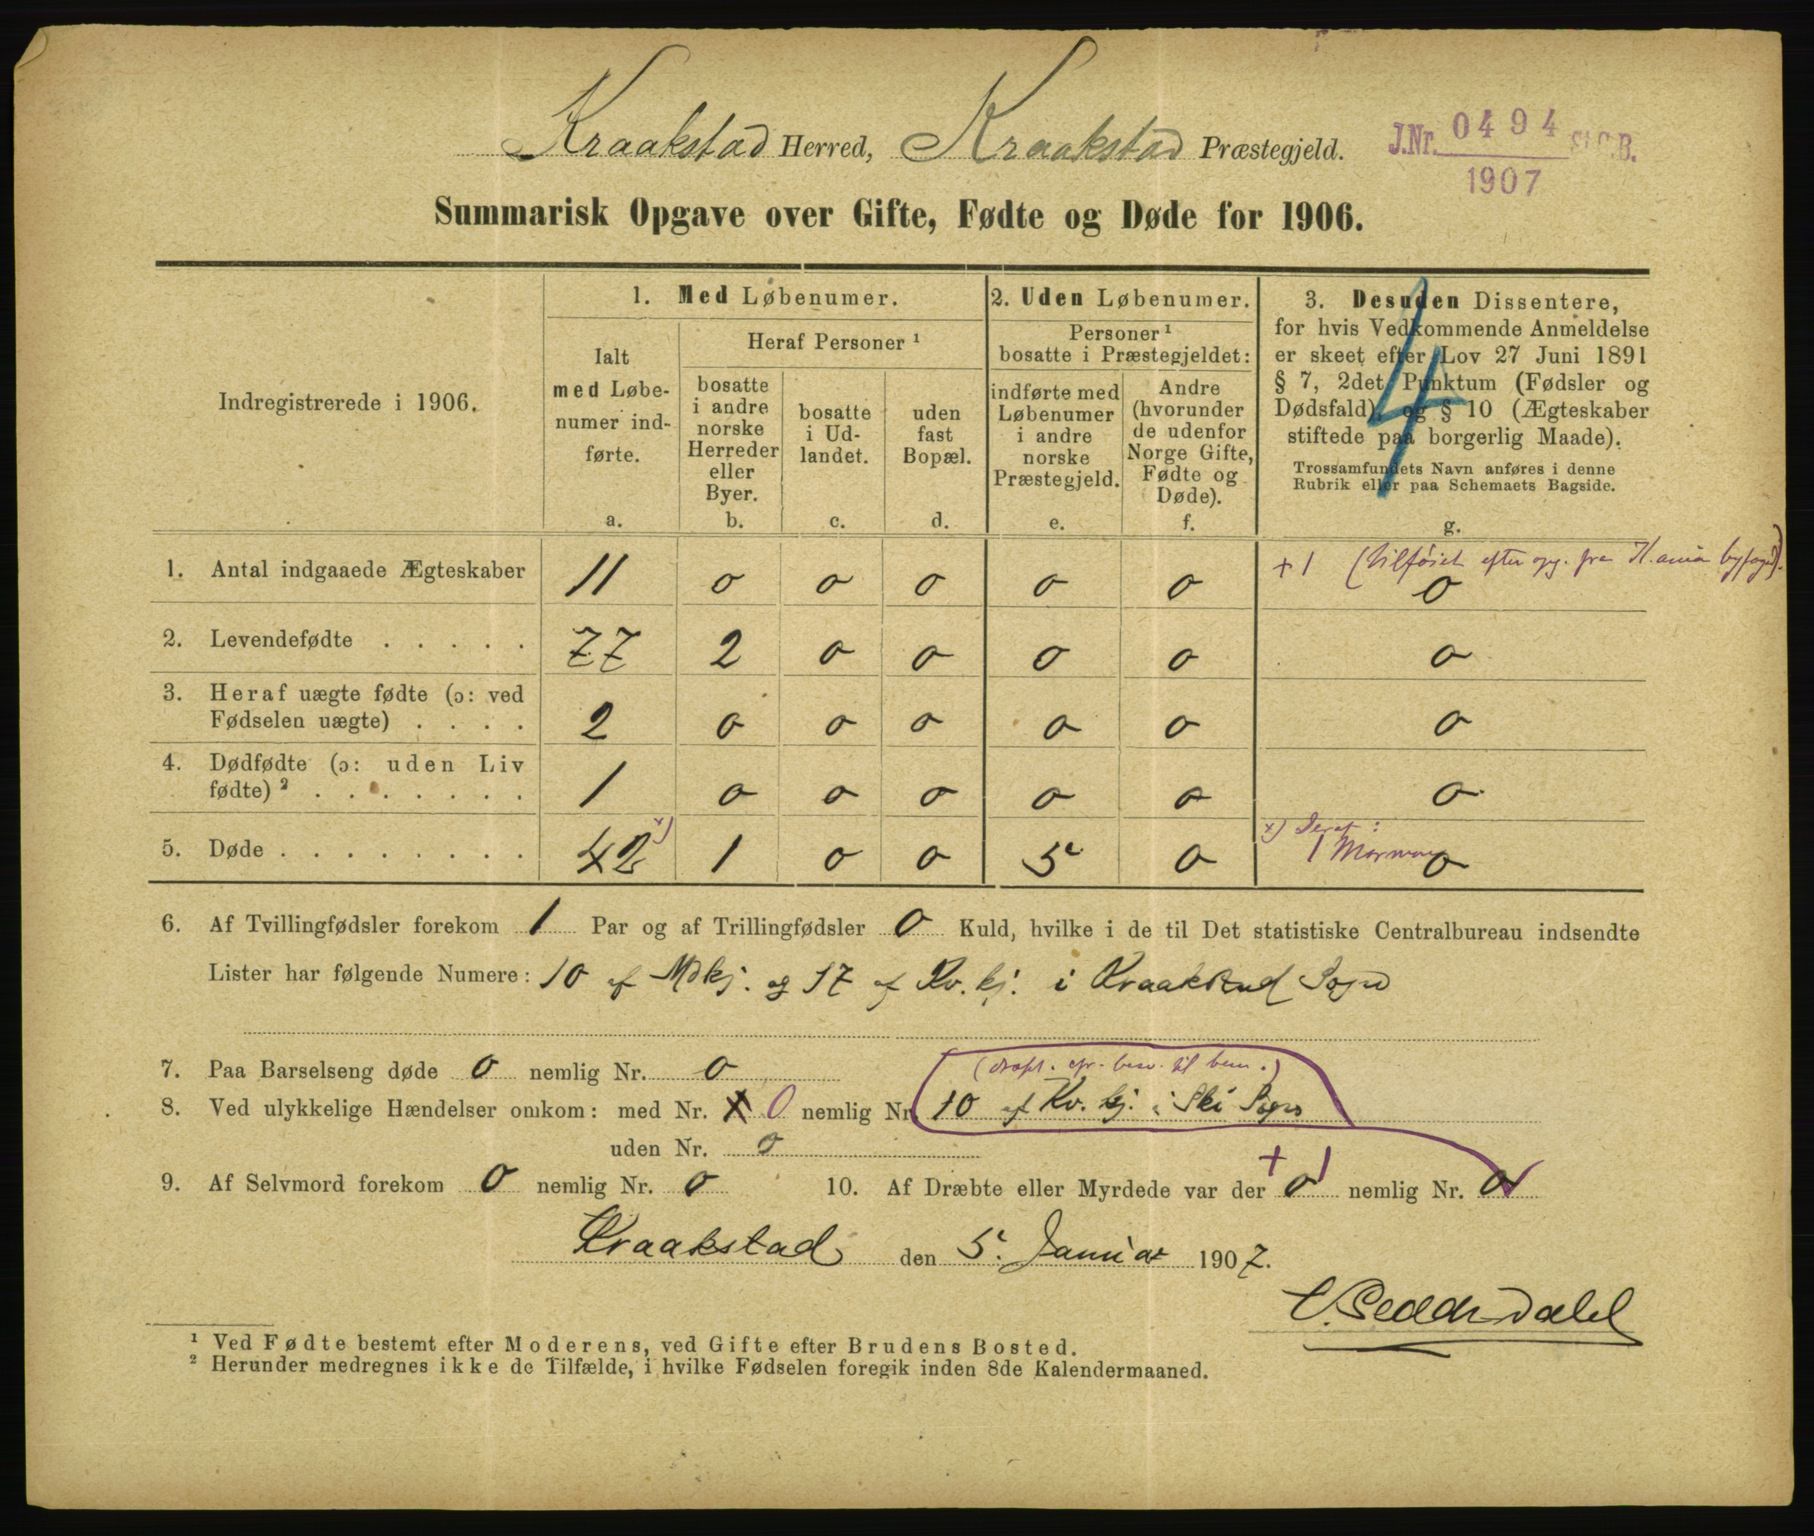 Kraakstad Herred, Kraakstad Præstegjeld.
J.Nr. 0494 St.C.B.
1907
Summarisk Opgave over Gifte, Fødte og Døde for 1906.
Indregistrerede i 1906.
1. Med Løbenumer.
Ialt
med Løbe-
numer ind-
førte.
a.
Heraf Personer ¹
bosatte
i andre
norske
Herreder
eller
Byer.
b.
bosatte
i Ud-
landet.
c.
uden
fast
Bopæl.
d.
2. Uden Løbenumer.
Personer ¹
bosatte i Præstegjeldet:
indførte med
Løbenumer
i andre
norske
Præstegjeld.
e.
Andre
(hvorunder
de udenfor
Norge Gifte,
Fødte og
Døde).
f.
3. Desuden Dissentere,
for hvis Vedkommende Anmeldelse
er skeet efter Lov 27 Juni 1891
§ 7, 2det Punktum (Fødsler og
Dødsfald), og § 10 (Ægteskaber
stiftede paa borgerlig Maade).
Trossamfundets Navn anføres i denne
Rubrik eller paa Schemaets Bagside.
g.
4
1. Antal indgaaede Ægteskaber 11 0 0 0 0 0 0
+1 (tilføiet efter opg. fra Kr.ania byfogd).
2. Levendefødte . . . . . 77 2 0 0 0 0 0
3. Heraf uægte fødte (ɔ: ved
Fødselen uægte) . . . . 2 0 0 0 0 0 0
4. Dødfødte (ɔ: uden Liv
fødte) ² . . . . . . . 1 0 0 0 0 0 0
5. Døde . . . . . . . . 42 x) 1 0 0 5 0 0
x) Deraf:
1 Mormon
6. Af Tvillingfødsler forekom 1 Par og af Trillingfødsler 0 Kuld, hvilke i de til Det statistiske Centralbureau indsendte
Lister har følgende Numere: 10 af Mdkj. og 17 af Kv.kj. i Kraakstad Sogn
7. Paa Barselseng døde 0 nemlig Nr. 0
(dræpt. efr. besv. til bem.)
8. Ved ulykkelige Hændelser omkom: med Nr. 1 0 nemlig Nr. 10 af Kv. kj. i Ski Sogn
uden Nr. 0
9. Af Selvmord forekom 0 nemlig Nr. 0 10. Af Dræbte eller Myrdede var der + 0 1 nemlig Nr. 0
Kraakstad den 5. Januar 1907.
¹ Ved Fødte bestemt efter Moderens, ved Gifte efter Brudens Bosted.
² Herunder medregnes ikke de Tilfælde, i hvilke Fødselen foregik inden 8de Kalendermaaned.